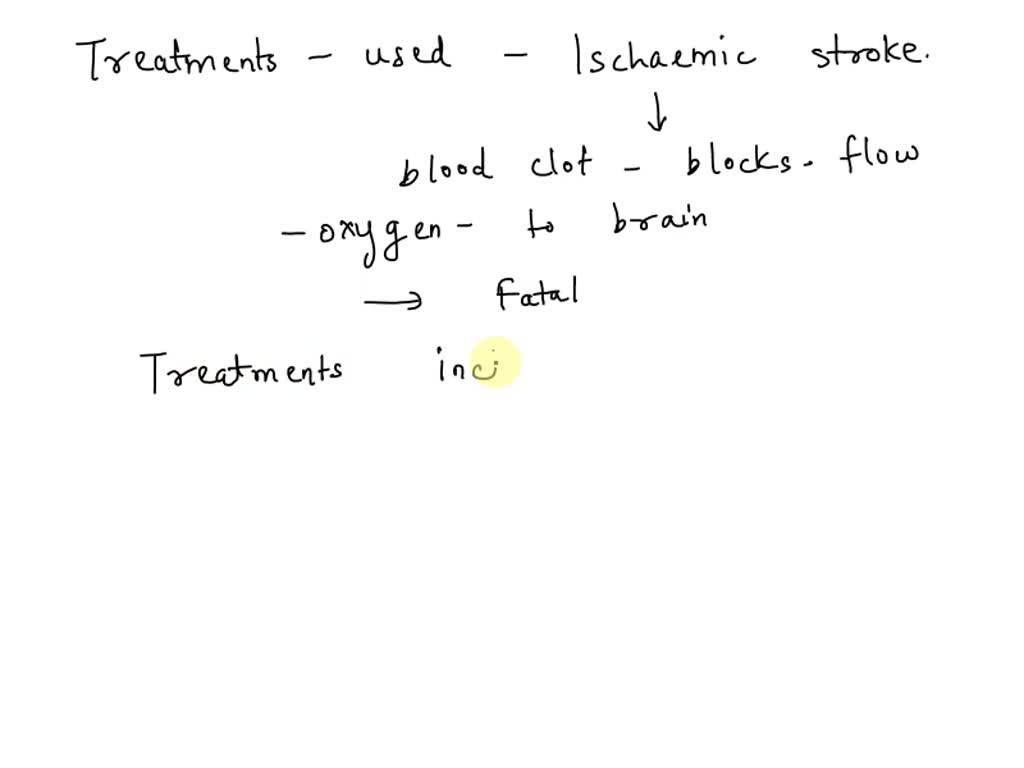 Treatments - used - Ischaemic stroke.
↓
blood clot - blocks. flow
- oxygen - to brain
→ Fatal
Treatments inci